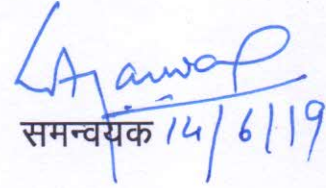 समन्वयक 14/6/19